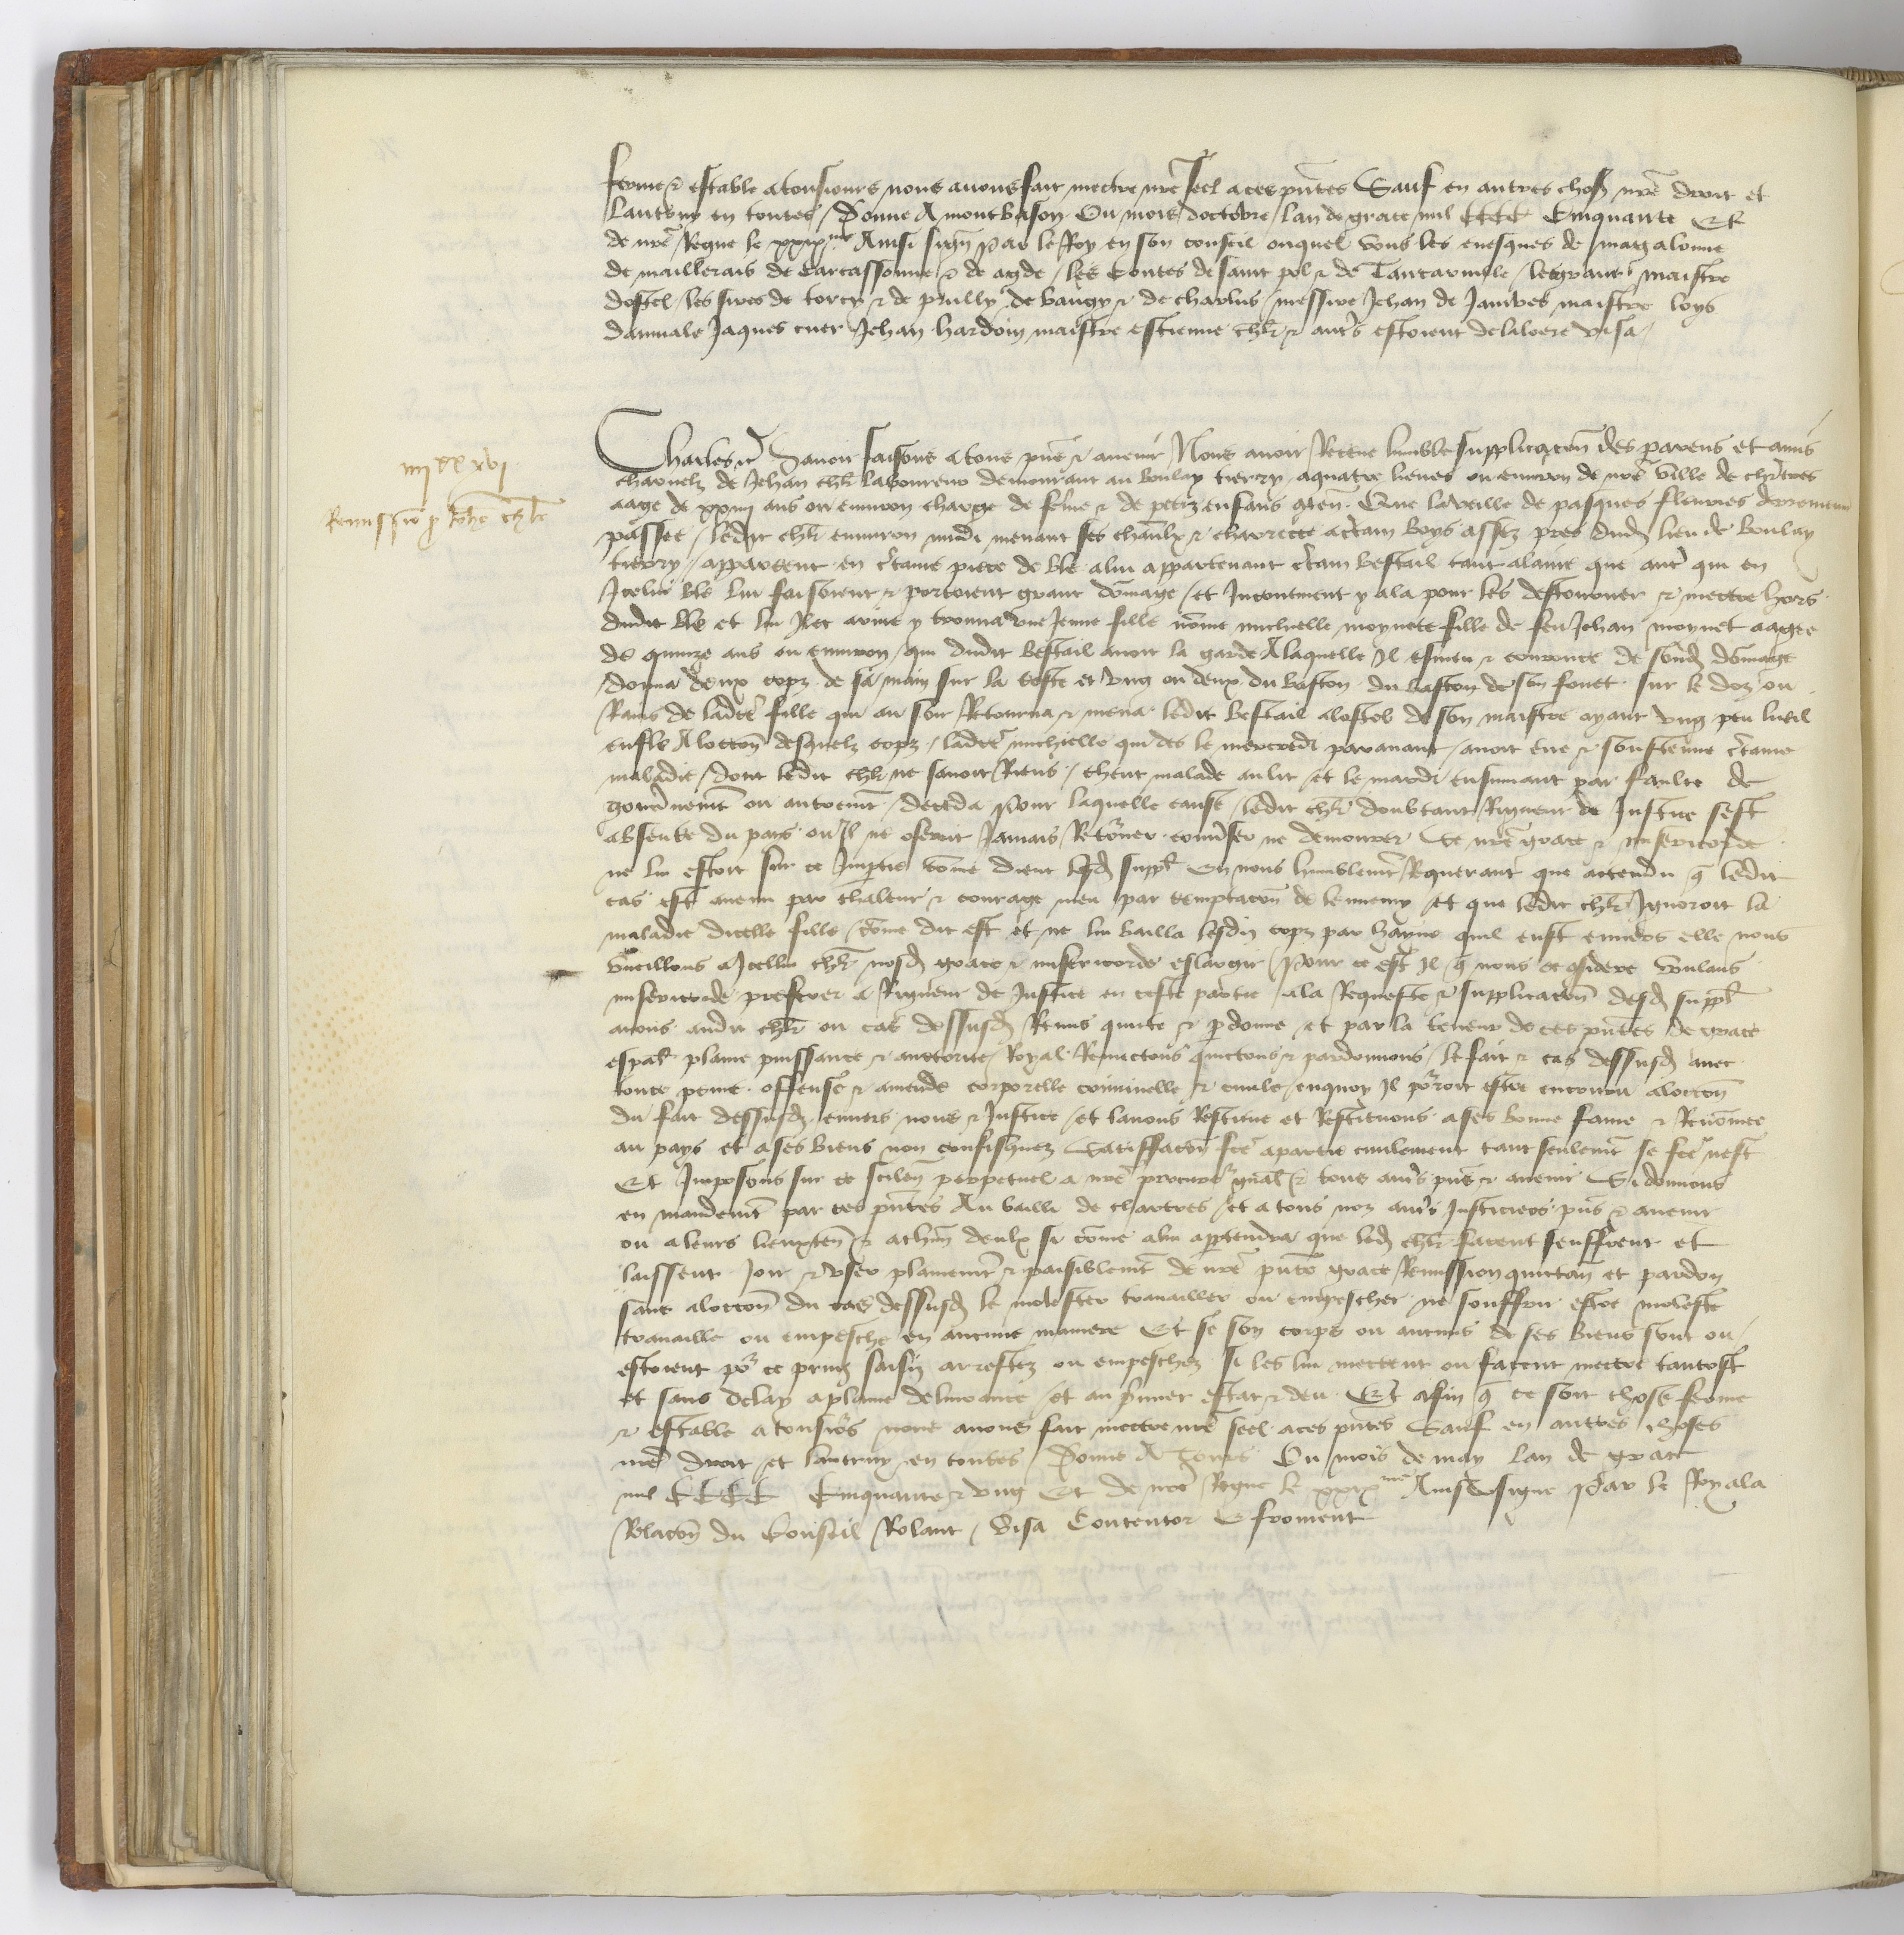 ferme & estable a tousiours nous auons fait mectre nre seel a ces pntes Sauf en autres choses nre droit et
lautruy en toutes / Donne A montbason Ou mois doctobre / lan de grace mil CCCC Cinquante Et
de nre Regne le xxixme Ainsi sign Par le Roy en son conseil ouquel vous les euesques de magalonne
de maillerais de Carcassonne & de agde / les Contes de saint pol & de Tancaruille / le grant maistre
dostel / les sires de torcy & de prully de vaugy & de charlus / messire Jehan de Jambes maistre loys
daumale Jaques cuer Jehan hardoin maistre estienne chlr & autrs estoient delibere visa /
iiii xx xvi
Remission p Jehan chlr
Charles &c Sauoir faisons a tous pns & auenir Nous auoir Receue humble supplicacon des parens et amis
charnelz de Jehan chlr laboureur demourant au boulay tierry a quatre lieues ou enuiron de nre ville de chartres
aage de xxiiii ans ou enuiron charge de feme & de petiz enfans Que la veille de pasques fleuries derrenierement
passee / ledit chlr enuiron midi menant ses cheuaulx & charrecte a certain boys assez pres dud lieu de boulay
tierry / apparceut en certaine piece de ble a lui appartenant certain bestail tant a laine que autre qui en
Icelui ble lui faisoient & portoient grant domage / et Incontinent y ala pour les destourner & mectre hors
dudit ble et lui Ilec ariue y trouua vne Jeune fille nomee michielle moynete fille de feu Jehan moynet aagee
de quinze ans ou enuiron / qui dudit bestail auoit la garde A laquelle Il esmeu & courrouce de sond domage
donna deux copz de sa main sur la teste et vng ou deux du baston du baston de son fouet sur le doz ou
Rains de ladicte fille qui au soir Retourna & mena ledit bestail a lostel de son maistre ayant vng peu lueil
enfle A loccon desquelz copz / ladicte michielle qui des le mercredi parauant / auoit eue & soustenue certaine
maladie / dont ledit chlr ne sauoit Riens / cheut malade au lit et le mardi ensuiuant par faulte de
gouuernemt ou autremt / deceda Pour laquelle cause / ledit chlr doubtant Rigueur de Justice sest
absente du pays ou Il ne oseroit Jamais Retorner conuerser ne demourer Se nre grace & misericorde
ne lui estoit sur ce Impartie come dient lesd suppl En nous humblemt Requerant que actendu q ledit
cas est auenu par chaleur & courage meu par temptacon de lennemy et que ledit chlr Ignoroit la
maladie dicelle fille come dit est et ne lui bailla lesdiz copz par hayne quil eust enuers elle nous
vueillons a Icellui chlr nosd grace & misericorde eslargir / Pour ce est Il q nous ce considere voulans
misericorde preferer a Rigueur de Justice en ceste partie a la Requeste & supplicacon desd suppl
auons audit chlr ou cas dessusd Remis quicte & pdonne et par la teneur de ces pntes de grace
espal plaine puissance & auctorite Royal Remectons quictons & pardonnons / le fait & cas dessusd auec
toute peine offense & amende corporelle criminelle & ciuile enquoy Il porroit estre encouru a loccon
du fait dessusd enuers nous & Justice et lauons Restitue et Restituons a ses bonne fame & Renomee
au pays et a ses biens non confisquez Satisffacon fcte a partie ciuilement tant seulemt se fcte nest
Et Imposons sur ce scilen perpetuel a nre procureur gnal & tous autrs pns & auenir Si donnons
en mandemt par ces pntes Au bailli de chartres et a tous noz autrs Justiciers pns & auenir
ou a leurs lieuxten & achun deulx si come a lui appartendra que led chlr facent seuffrent et
laissent Joir & vser plainemt & paisiblemt de nre pnte grace Remission quictan et pardon
sans a loccon du cas dessusd le molester trauailler ou empescher ne souffrir estre moleste
trauaille ou empesche en aucune maniere Et se son corps ou aucuns de ses biens sont ou
estoient por ce prins saisiz arrestez ou empeschez si les lui mectent ou facent mectre tantost
et sans delay a plaine deliurance et au premier estat & deu Et afin q ce soit chose ferme
& estable a tousiors nous auons fait mectre nre seel a ces pntes Sauf en autres choses
nre droit et lautruy en toutes Donne A Tours Ou mois de may Lan de grace
mil CCCC Cinquante & vng Et de nre Regne le xxixme Ainsi signe Par le Roy a la
Relacon du Conseil Rolant / Visa Contentor E froment